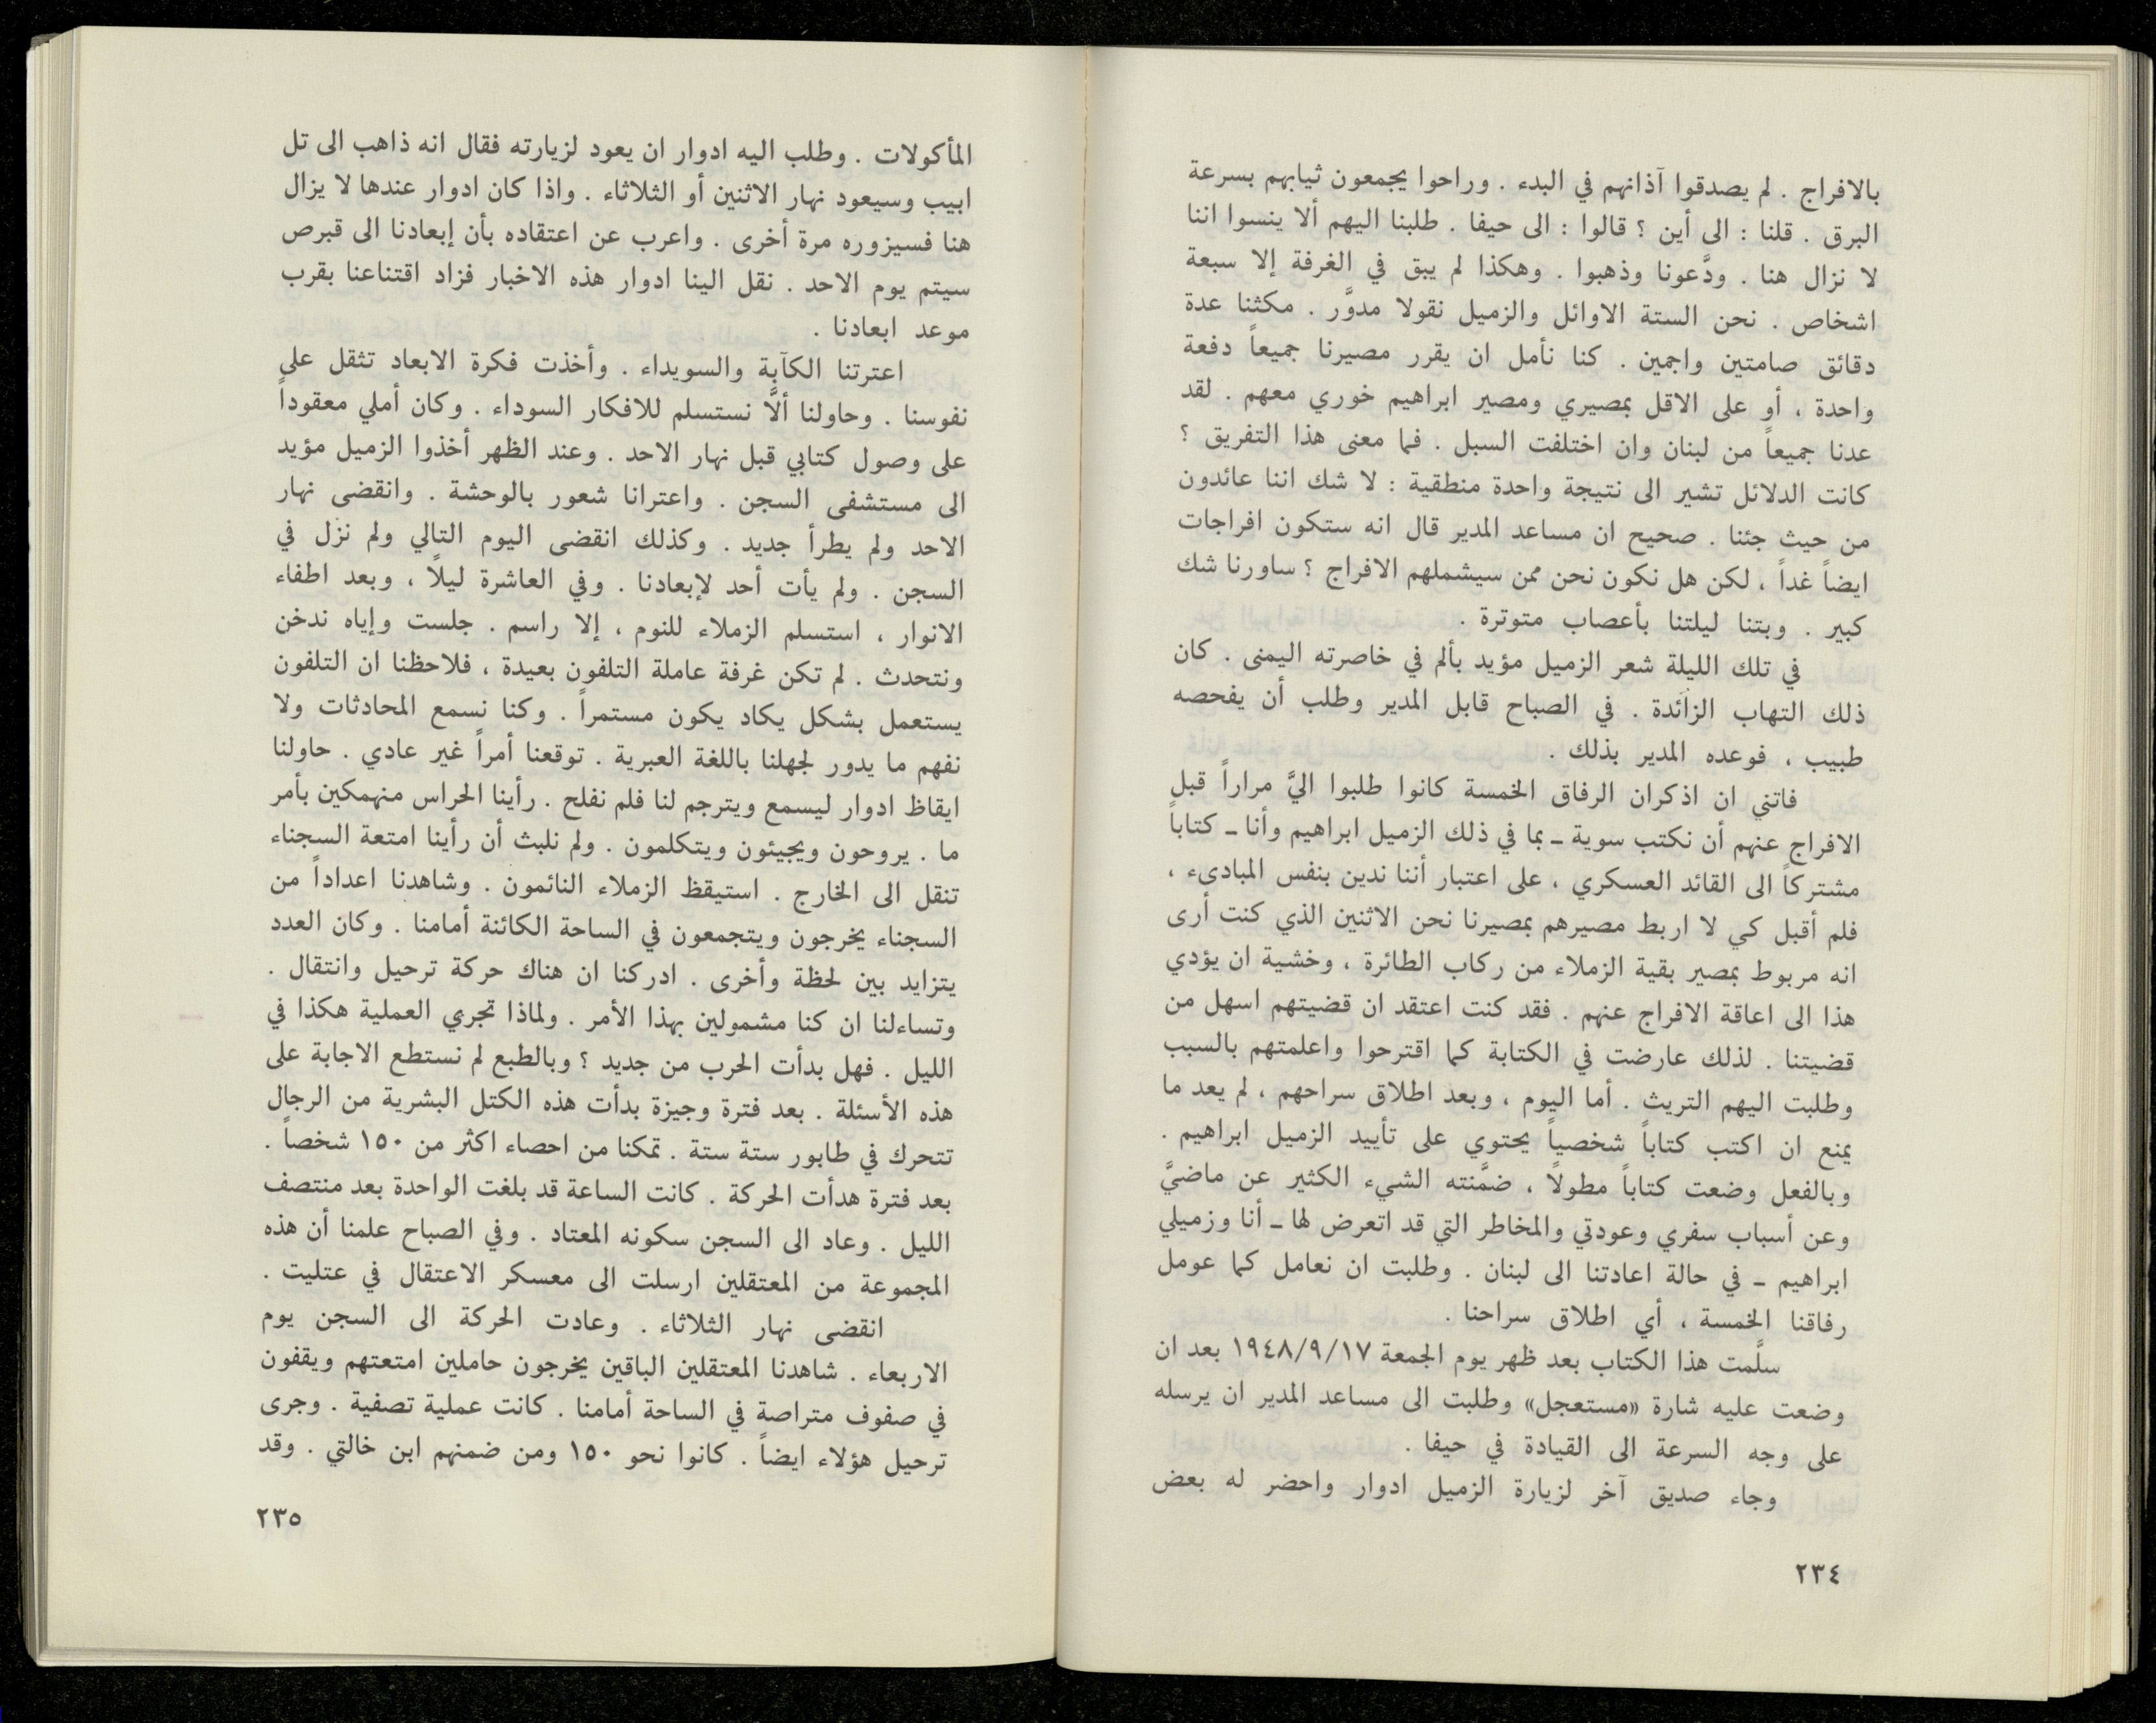 بالافراج . لم يصدقوا آذانهم في البدء . وراحوا يجمعون ثيابهم بسرعة
البرق . قلنا : الى أين ؟ قالوا : الى حيفا . طلبنا اليهم ألا ينسوا اننا
لا نزال هنا . ودَّعونا وذهبوا . وهكذا لم يبق في الغرفة إلا سبعة
اشخاص . نحن الستة الاوائل والزميل نقولا مدوَّر . مكثنا عدة
دقائق صامتين واجمين . كنا نأمل ان يقرر مصيرنا جميعاً دفعة
واحدة ، أو على الاقل بمصيري ومصير ابراهيم خوري معهم . لقد
عدنا جميعاً من لبنان وان اختلفت السبل . فما معنى هذا التفريق ؟
كانت الدلائل تشير الى نتيجة واحدة منطقية : لا شك اننا عائدون
من حيث جئنا . صحيح ان مساعد المدير قال انه ستكون افراجات
ايضاً غداً ، لكن هل نكون نحن ممن سيشملهم الافراج ؟ ساورنا شك
كبير . وبتنا ليلتنا بأعصاب متوترة .
في تلك الليلة شعر الزميل مؤيد بألم في خاصرته اليمنى . كان
ذلك التهاب الزائدة . في الصباح قابل المدير وطلب أن يفحصه
طبيب ، فوعده المدير بذلك .
فاتني ان اذكران الرفاق الخمسة كانوا طلبوا اليَّ مراراً قبل
الافراج عنهم أن نكتب سوية ـ بما في ذلك الزميل ابراهيم وأنا ـ كتاباً
مشتركاً الى القائد العسكري ، على اعتبار أننا ندين بنفس المبادىء ،
فلم أقبل كي لا اربط مصيرهم بمصيرنا نحن الاثنين الذي كنت أرى
انه مربوط بمصير بقية الزملاء من ركاب الطائرة ، وخشية ان يؤدي
هذا الى اعاقة الافراج عنهم . فقد كنت اعتقد ان قضيتهم اسهل من
قضيتنا . لذلك عارضت في الكتابة كما اقترحوا واعلمتهم بالسبب
وطلبت اليهم التريث . أما اليوم ، وبعد اطلاق سراحهم ، لم يعد ما
يمنع ان اكتب كتاباً شخصياً يحتوي على تأييد الزميل ابراهيم .
وبالفعل وضعت كتاباً مطولاً ، ضمَّنته الشيء الكثير عن ماضيَّ
وعن أسباب سفري وعودتي والمخاطر التي قد اتعرض لها ـ أنا وزميلي
ابراهيم ـ في حالة اعادتنا الى لبنان . وطلبت ان نعامل كما عومل
رفاقنا الخمسة ، أي اطلاق سراحنا .
سلَّمت هذا الكتاب بعد ظهر يوم الجمعة ١٩٤٨/٩/١٧ بعد ان
وضعت عليه شارة «مستعجل» وطلبت الى مساعد المدير ان يرسله
على وجه السرعة الى القيادة في حيفا .
وجاء صديق آخر لزيارة الزميل ادوار واحضر له بعض
٢٣٤
المأكولات . وطلب اليه ادوار ان يعود لزيارته فقال انه ذاهب الى تل
ابيب وسيعود نهار الاثنين أو الثلاثاء . واذا كان ادوار عندها لا يزال
هنا فسيزوره مرة أخرى . واعرب عن اعتقاده بأن إبعادنا الى قبرص
سيتم يوم الاحد . نقل الينا ادوار هذه الاخبار فزاد اقتناعنا بقرب
موعد ابعادنا .
اعترتنا الكآبة والسويداء . وأخذت فكرة الابعاد تثقل على
نفوسنا . وحاولنا ألاَّ نستسلم للافكار السوداء . وكان أملي معقوداً
على وصول كتابي قبل نهار الاحد . وعند الظهر أخذوا الزميل مؤيد
الى مستشفى السجن . واعترانا شعور بالوحشة . وانقضى نهار
الاحد ولم يطرأ جديد . وكذلك انقضى اليوم التالي ولم نزل في
السجن . ولم يأت أحد لإبعادنا . وفي العاشرة ليلاً ، وبعد اطفاء
الانوار ، استسلم الزملاء للنوم ، إلا راسم . جلست وإياه ندخن
ونتحدث . لم تكن غرفة عاملة التلفون بعيدة ، فلاحظنا ان التلفون
يستعمل بشكل يكاد يكون مستمراً . وكنا نسمع المحادثات ولا
نفهم ما يدور لجهلنا باللغة العبرية . توقعنا أمراً غير عادي . حاولنا
ايقاظ ادوار ليسمع ويترجم لنا فلم نفلح . رأينا الحراس منهمكين بأمر
ما . يروحون ويجيئون ويتكلمون . ولم نلبث أن رأينا امتعة السجناء
تنقل الى الخارج . استيقظ الزملاء النائمون . وشاهدنا اعداداً من
السجناء يخرجون ويتجمعون في الساحة الكائنة أمامنا . وكان العدد
يتزايد بين لحظة وأخرى . ادركنا ان هناك حركة ترحيل وانتقال .
وتساءلنا ان كنا مشمولين بهذا الأمر . ولماذا تجري العملية هكذا في
الليل . فهل بدأت الحرب من جديد ؟ وبالطبع لم نستطع الاجابة على
هذه الأسئلة . بعد فترة وجيزة بدأت هذه الكتل البشرية من الرجال
تتحرك في طابور ستة ستة . تمكنا من احصاء اكثر من ١٥٠ شخصاً .
بعد فترة هدأت الحركة . كانت الساعة قد بلغت الواحدة بعد منتصف
الليل . وعاد الى السجن سكونه المعتاد . وفي الصباح علمنا أن هذه
المجموعة من المعتقلين ارسلت الى معسكر الاعتقال في عتليت .
انقضى نهار الثلاثاء . وعادت الحركة الى السجن يوم
الاربعاء . شاهدنا المعتقلين الباقين يخرجون حاملين امتعتهم ويقفون
في صفوف متراصة في الساحة أمامنا . كانت عملية تصفية . وجرى
ترحيل هؤلاء ايضاً . كانوا نحو ١٥٠ ومن ضمنهم ابن خالتي . وقد
٢٣٥